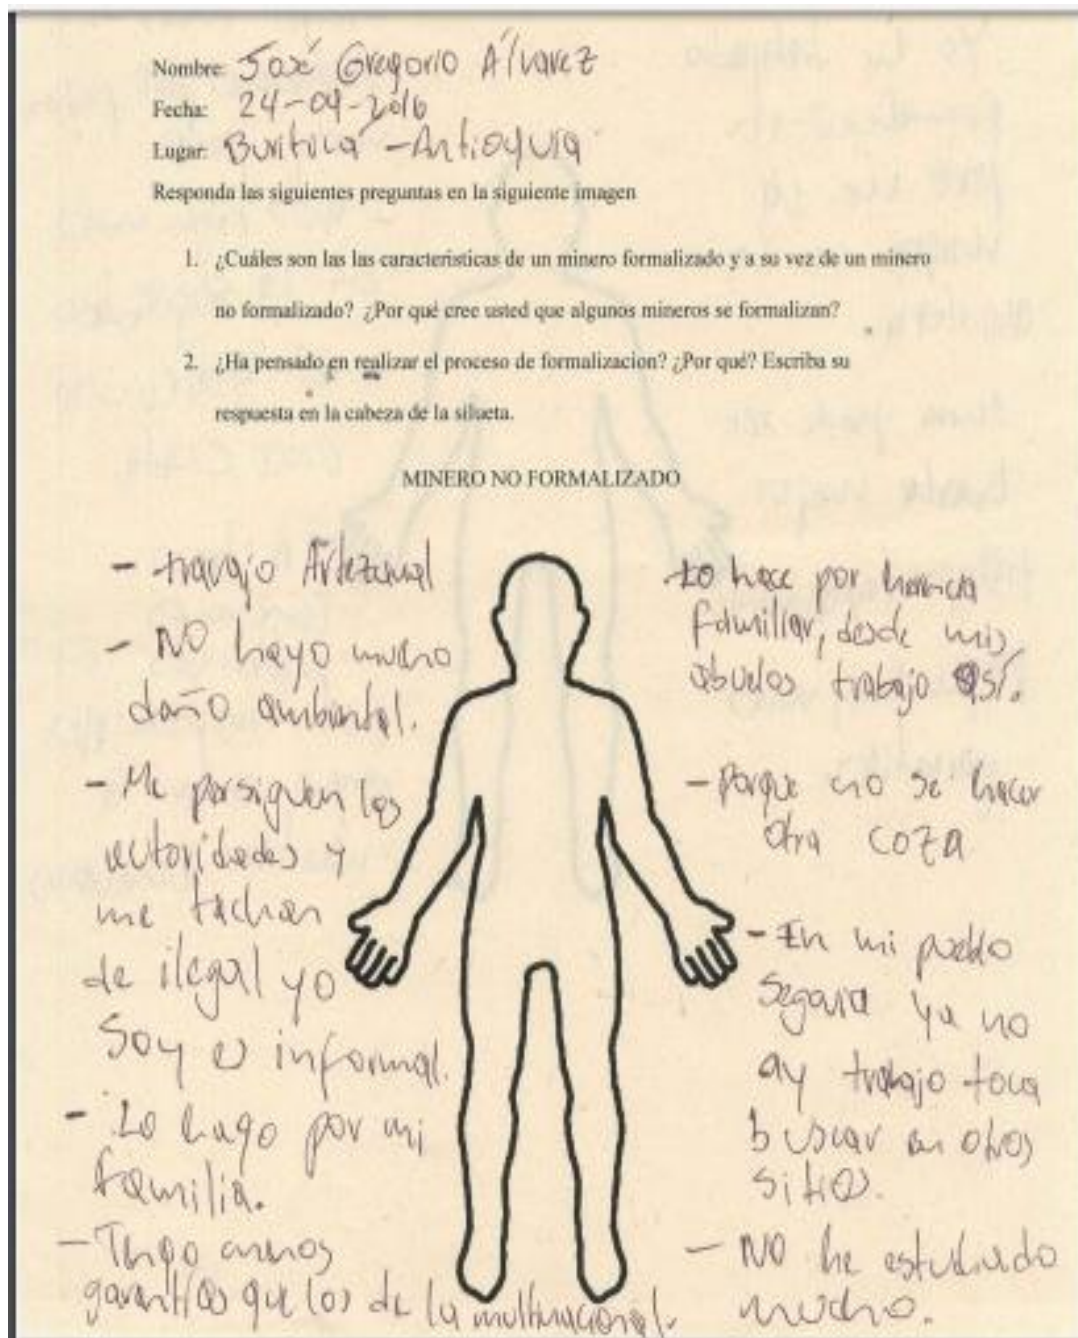 Nombre: José Gregorio Álvarez
Fecha: 24-04-2016
Lugar: Buriticá - Antioquia
Responda las siguientes preguntas en la siguiente imagen
1. ¿Cuáles son las las características de un minero formalizado y a su vez de un minero
no formalizado? ¿Por qué cree usted que algunos mineros se formalizan?
2. ¿Ha pensado en realizar el proceso de formalizacion? ¿Por qué? Escriba su
respuesta en la cabeza de la silueta.
MINERO NO FORMALIZADO
- travajo Artezanal
- NO hayo mucho
daño ambiental.
- Me persiguen las
autoridades y
me tachan
de ilegal yo
Soy es informal.
- Lo hago por mi
familia.
- Tengo menos
garantías que los de la multinacional.
- Lo hace por herencia
familiar, desde mis
abuelos trabajo así.
- Porque no se hacer
otra coza
- En mi pueblo
Segovia ya no
ay trabajo toca
buscar en otros
sitios.
- NO he estudiado
mucho.